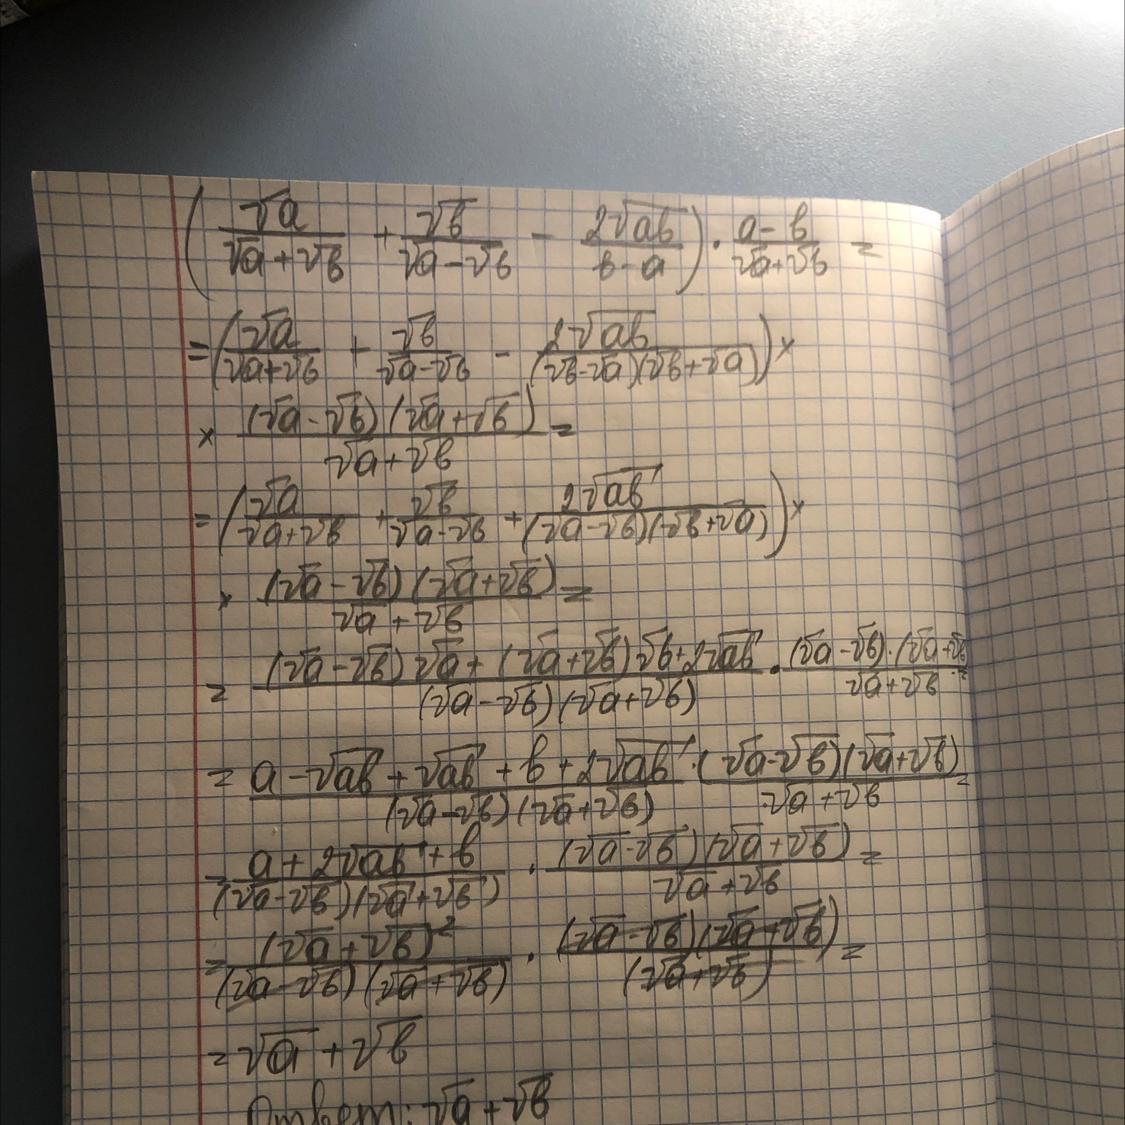 (√a/(√a+√b) + √b/(√a-√b) - 2√ab/(b-a)) · (a-b)/(√a+√b) =
= (√a/(√a+√b) + √b/(√a-√b) - 2√ab/((√b-√a)(√b+√a))) ×
× (√a-√b)(√a+√b)/(√a+√b) =
= (√a/(√a+√b) + √b/(√a-√b) + 2√ab/((√a-√b)(√b+√a))) ×
× (√a-√b)(√a+√b)/(√a+√b) =
= ((√a-√b)√a + (√a+√b)√b + 2√ab)/((√a-√b)(√a+√b)) · (√a-√b)·(√a+√b)/(√a+√b) =
= (a-√ab+√ab+b+2√ab)/((√a-√b)(√a+√b)) · (√a-√b)(√a+√b)/(√a+√b) =
= (a+2√ab+b)/((√a-√b)(√a+√b)) · (√a-√b)(√a+√b)/(√a+√b) =
= (√a+√b)²/((√a-√b)(√a+√b)) · (√a-√b)(√a+√b)/(√a+√b) =
= √a + √b
Ответ: √a + √b